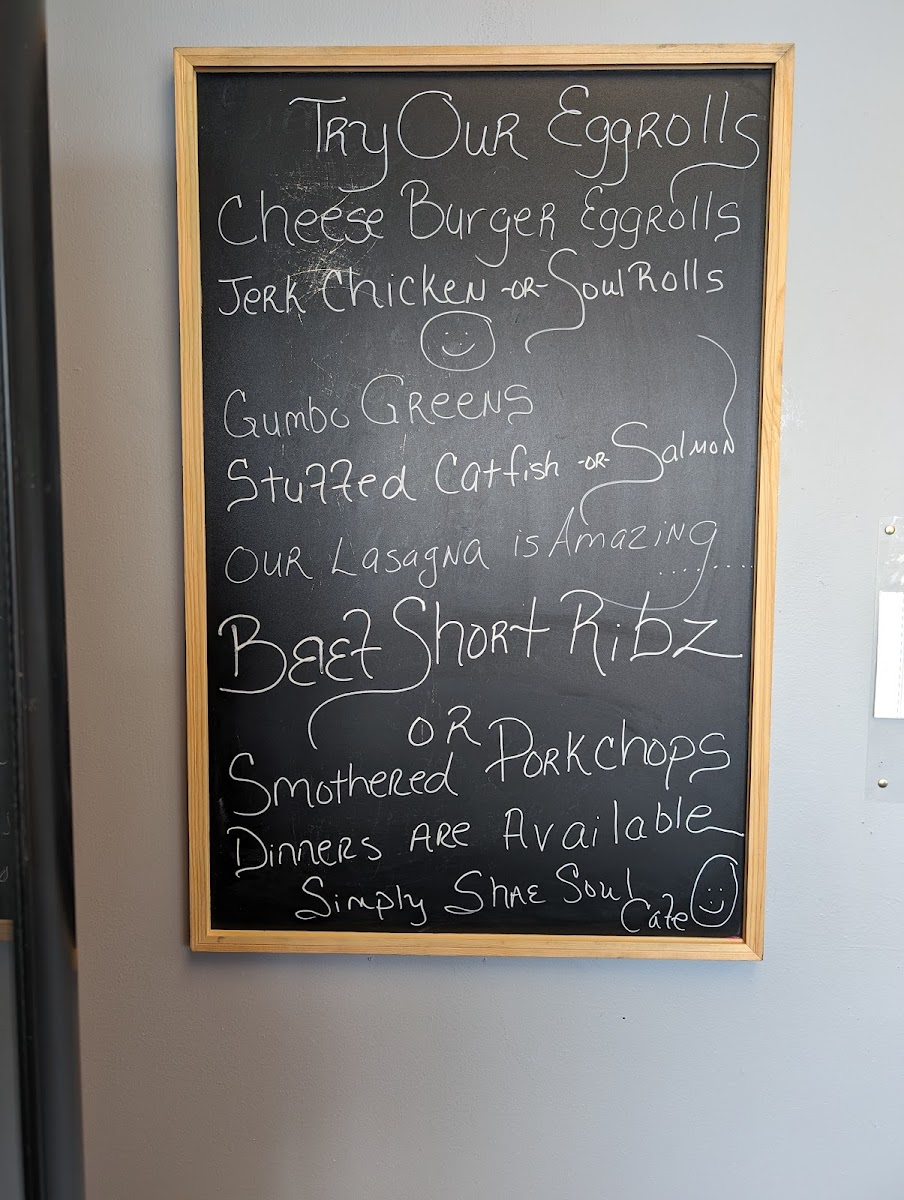 Try Our Eggrolls
Cheese Burger Eggrolls
Jerk Chicken -OR- Soul Rolls
Gumbo Greens
Stuffed Catfish -OR- Salmon
Our Lasagna is Amazing.......
Beef Short Ribz
OR
Smothered Porkchops
Dinners ARE Available
Simply Shae Soul
Cafe